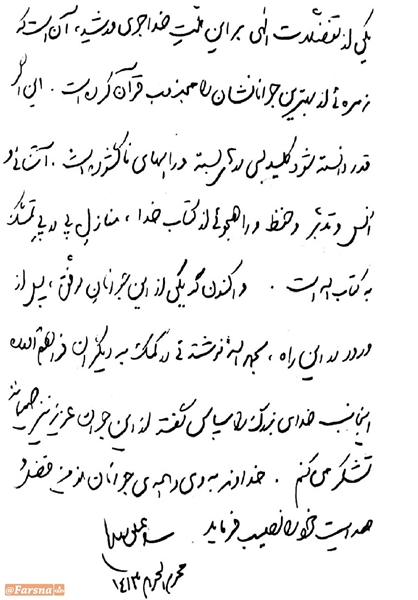 یکی از تفضلات الهی بر این ملتِ خداجوی و رشید، آن است که
زمره‌ئی از بهترین جوانانشان را مجذوب قرآن کرده است. این اگر
قدر دانسته شود کلید بسی درهای بسته و راههای ناگشوده است. آشنائی و
انس و تدبّر و حفظ و راهجوئی از کتاب خدا، منازل پی در پیِ تمسّک
به کتاب اله است. و اکنون که یکی از این جوانان موفّق، پس از
ورود در این راه، بحمد اله نوشته‌ئی در کمک به دیگران فراهم آورده
اینجانب خدای بزرگ را سپاس گفته از این جوان عزیز نیز صمیمانه
تشکر می‌کنم. خداوند به وی و همه‌ی جوانان مؤمن فضل و
هدایت خود را نصیب فرماید.
سید علی خامنه‌ای
محرم الحرام ۱۴۱۳
@Farsna